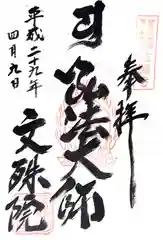 奉拝
弘法大師
文殊院
平成二十九年
四月九日